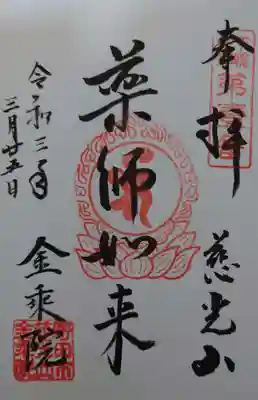 奉拝
慈光山
薬師如来
令和三年
三月廿五日
金乗院